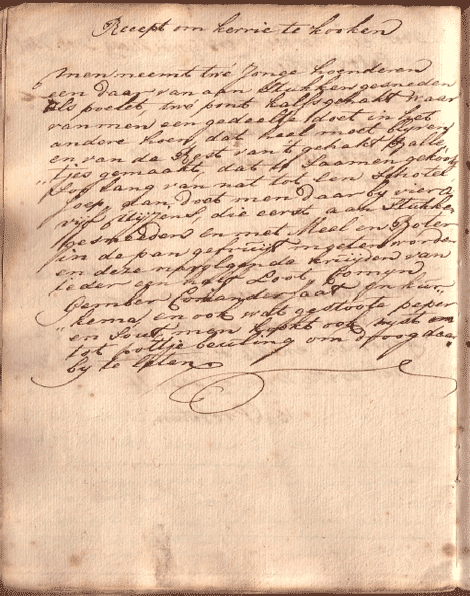 Recept om kerrie te kooken
Men neemt twe Jonge hoenderen
een daar van aan Stukken gesneden
als poelet twe pont kalfsgehakt waar
van men een gedeelte doet in het
andere hoen, dat heel moet blyven
en van de Rest van 't gehakt Balle,
tjes gemaakt, dat te saamen gekookt
zoo lang van nat tot een Schotel
soep, dan doet men daar by vier a
vyf Uyjens, die eerst aan Stukke
gesneeden en met Meel en Boter
in de pan gefruijt moeten worden
en deze navolgende kruijden van
ieder een half Loot, Comyn
Gember Comander saat en kur,
kema, en ook wat gestoote peper
en Sout, men kookt ook ryst
tot pottje beuling om droog daar
by te Eeten